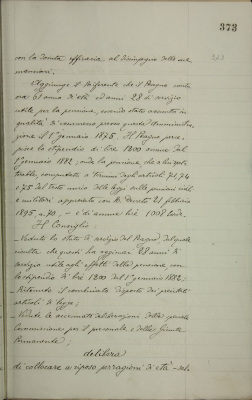 373
con la dovuta efficacia al disimpegno delle sue
mansioni.
Aggiunge il Referente che il Bagno conta
ora 61 anni d'età ed anni 28 di servizio
utile per la pensione, essendo stato assunto in
qualità di commesso presso quest'Amministra_
zione il 1° gennaio 1875. Il Bagno per_
cepisce lo stipendio di lire 1800 annue dal
1° gennaio 1882; onde la pensione, che gli spette_
rebbe, computata a termini degli articoli 71, 74
e 75 del testo unico delle leggi sulle pensioni civili
e militari approvato con R. Decreto 21 febbraio
1895, n. 70, è di annue lire 1008 lorde.
Il Consiglio
_Veduto lo stato di servizio del Bagno, dal quale
risulta che questi ha raggiunto 28 anni di
servizio utile agli effetti della pensione, con
lo stipendio di lire 1800 dal 1° gennaio 1882;
_Ritenuto il combinato disposto dei precitati
articoli di legge;
_Vedute le accennate deliberazioni della
Commissione per il personale e della Giunta
Permanente;
delibera
di collocare a riposo per ragioni di età